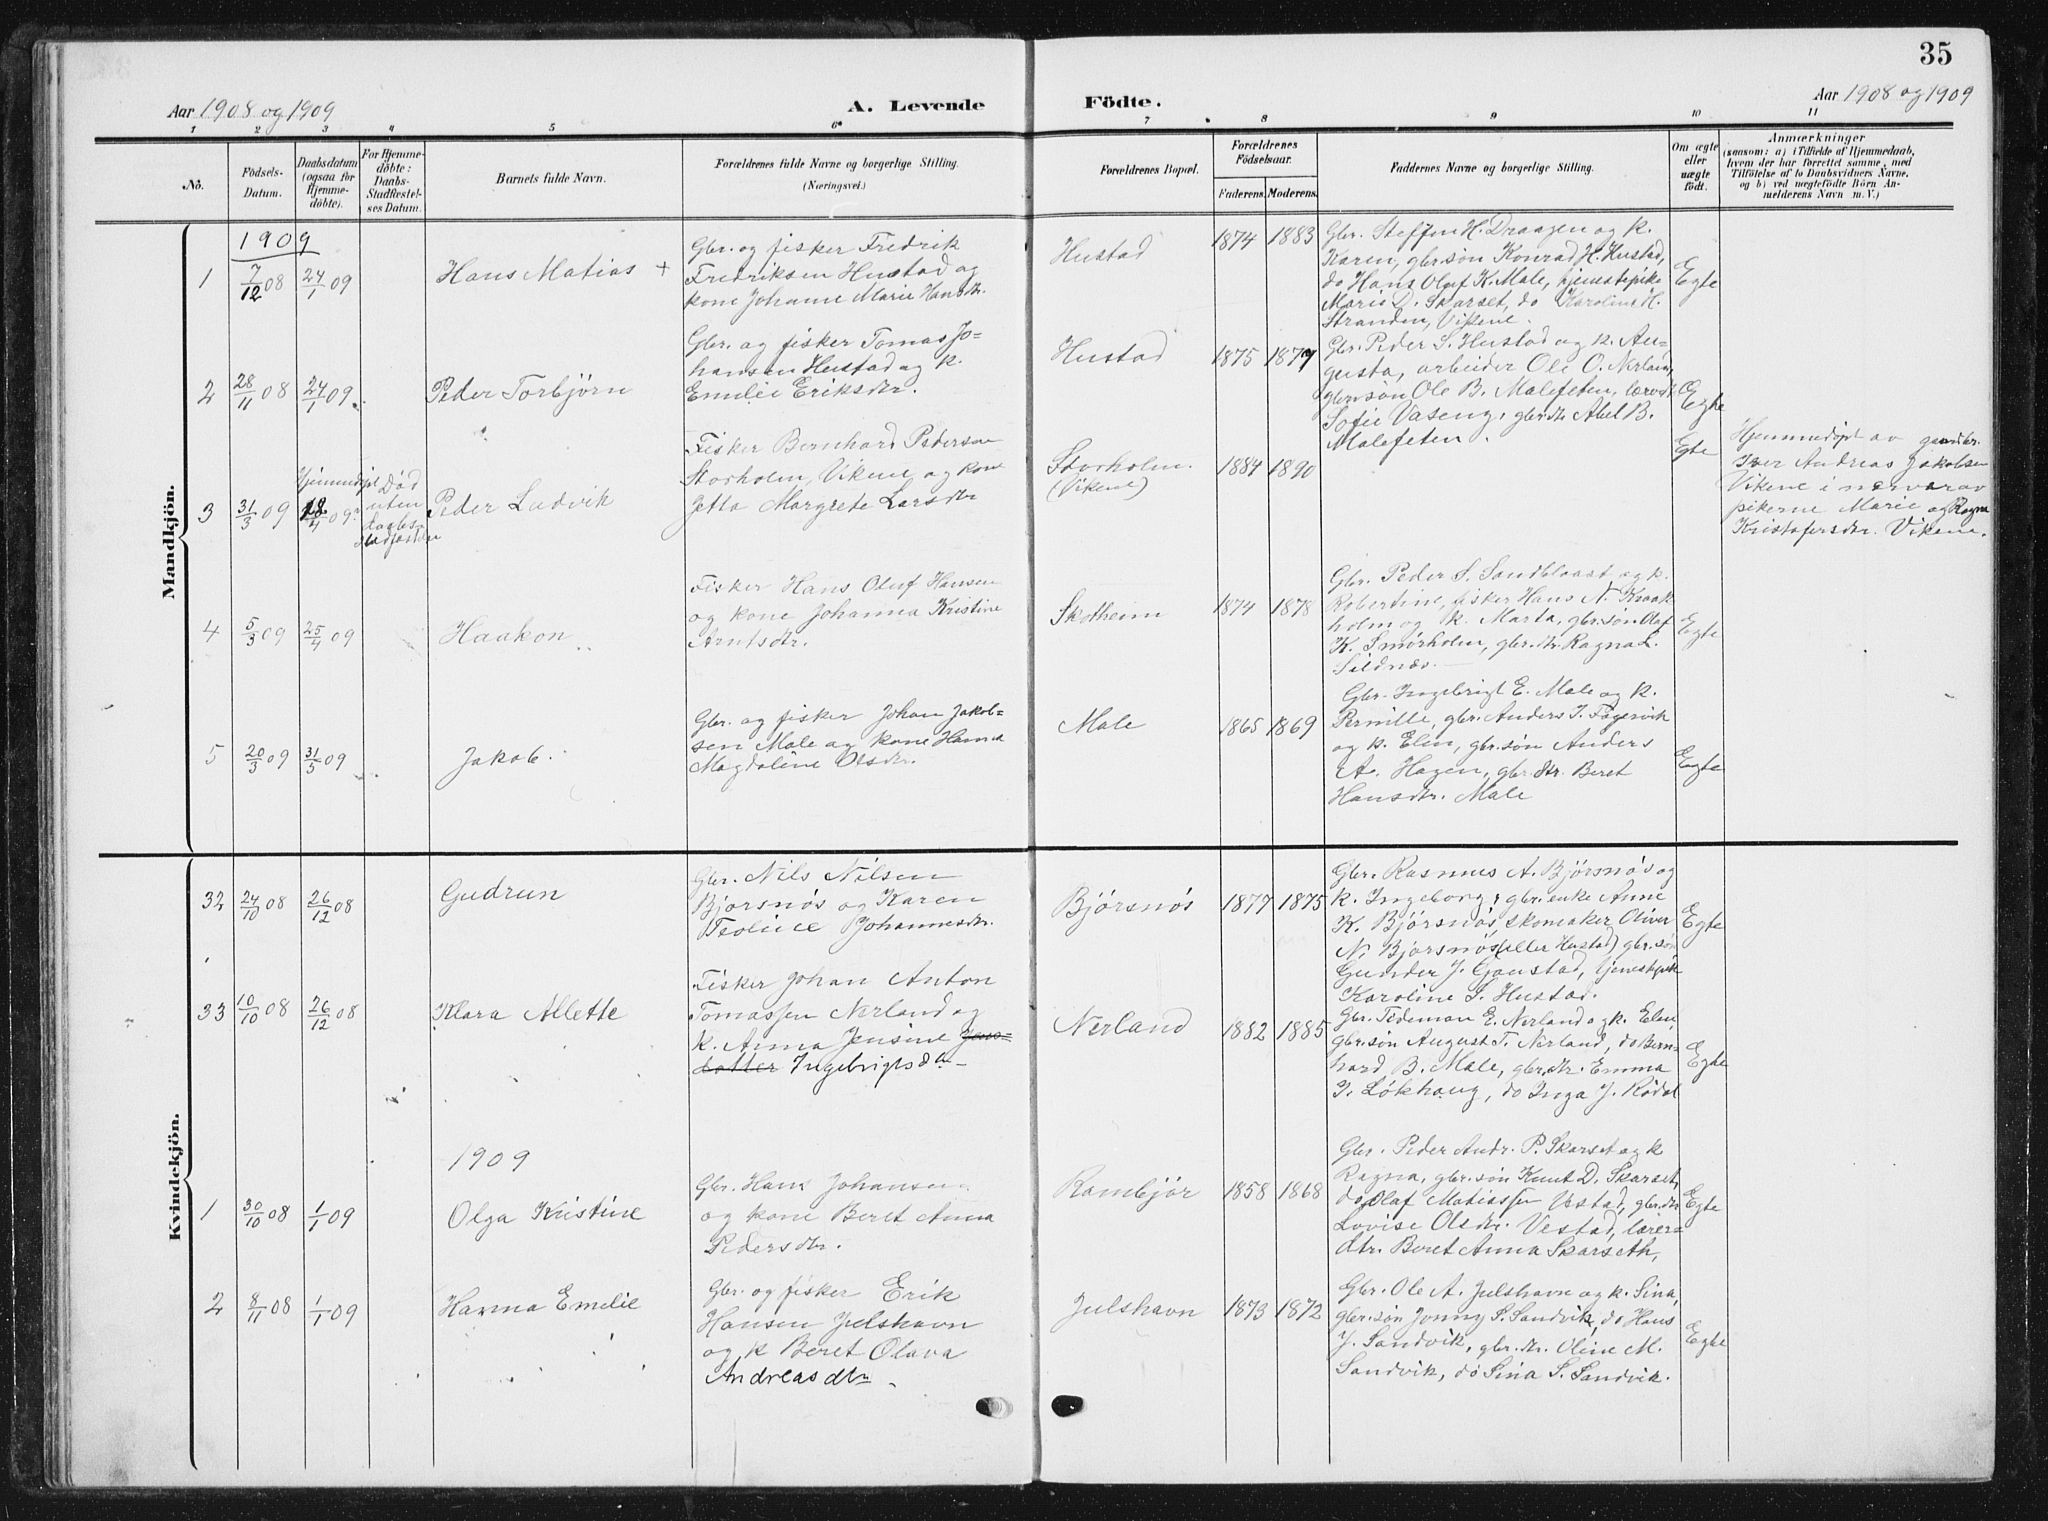 35
Aar 1908 og 1909
A. Levende Födte.
Aar 1908 og 1909
1 2 3 4 5 6 7 8 9 10 11
No.
Födsels-
Datum.
Daabsdatum
(ogsaa for
Hjemme-
döbte).
For Hjemme-
döbte:
Daabs-
Stadfæstel-
ses Datum.
Barnets fulde Navn.
Forældrenes fulde Navne og borgerlige Stilling.
(Næringsvei.)
Forældrenes Bopæl.
Forældrenes
Födselsaar.
Faderens. Moderens.
Faddernes Navne og borgerlige Stilling.
Om ægte
eller
uægte
födt.
Anmærkninger
(saasom: a) i Tilfælde af Hjemmedaab,
hvem der har forrettet samme, med
Tilföielse af to Daabsvidners Navne,
og b) ved uægtefödte Börn An-
melderens Navn m. V.)
Mandkjön.
1909
1 7/12 08 24/1 09
Hans Matias +
Gbr. og fisker Fredrik
Fredriksen Hustad og
kone Johanne Marie Hansdtr.
Hustad
1874 1883
Gbr. Steffen H. Draagen og k.
Karen, gbr.søn Konrad H. Hustad,
do Hans Oluf K. Male, tjenestepike
Marie D. Skarset, do Karoline H.
Stranden, Vikene.
Egte
2 28/11 08 24/1 09
Peder Torbjørn
Gbr. og fisker Tomas Jo-
hansen Hustad og k.
Emilie Eriksdtr.
Hustad
1875 1877
Gbr. Peder S. Hustad og k. Au-
gusta, arbeider Ole O. Nerland,
gbr.søn Ole B. Malefeten,
Sofie Vaseng, gbr.dtr. Abel B.
Malefeten.
Egte
3 31/3 09 Hjemmedøpt 18/4 09
Død
uten
daabs-
stadfæstelse
Peder Ludvik
Fisker Bernhard Pedersen
Storholm, Vikene og kone
Jetta Margrete Larsdtr
Storholm.
(Vikene)
1884 1890
Egte
Hjemmedøpt av gaardbr.
Iver Andreas Jakobsen
Vikene i nærvær av
pikerne Marie og Ragna
Kristofersdtr. Vikene.
4 5/3 09 25/4 09
Haakon
Fisker Hans Oluf Hansen
og kone Johanna Kristine
Arntsdtr.
Skotheim
1874 1878
Gbr. Peder S. Sandblaast og k.
Robertine, fisker Hans N. Kraak-
holm og k. Marta, gbr.søn Olaf
K. Smørholm, gbr.dtr. Ragna L.
Sildnæs.
Egte
5 20/3 09 31/5 09
Jakob.
Gbr. og fisker Johan Jakob-
sen Male og kone Hanna
Magdaline Olsdtr.
Male
1865 1869
Gbr. Ingebrigt E. Male og k.
Pernille, gbr. Anders I. Fagervik
og k. Elen, gbr.søn Anders
A. Hagen, gbr.dtr. Beret
Hansdtr. Male
Egte
Kvindekjön.
32 24/10 08 26/12 08
Gudrun
Gbr. Nils Nilsen
Bjørsnøs og Karen
Teoline Johannesdtr.
Bjørsnøs
1877 1875
Gbr. Rasmus A. Bjørsnøs og
k. Ingeborg, gbr.enke Anne
K. Bjørsnøs, skomaker Oliver
N. Bjørsnøs (eller Hustad) gbr.søn
Gunder J. Gaustad, tjenestpik
Karoline S. Hustad.
Egte
33 10/10 08 26/12 08
Klara Alette
Fisker Johan Anton
Tomassen Nerland og
k. Anna Jensine Jens-
datter Ingebrigtsdtr
Nerland
1882 1885
Gbr. Tideman E. Nerland og k. Elen,
gbr.søn August T. Nerland, do Bern-
hard B. Male, gbr.dtr. Emma
I. Løkhaug, do Inga J. Rødal
Egte
1909
1 30/10 08 1/1 09
Olga Kristine
Gbr. Hans Johansen
og kone Beret Anna
Pedersdtr.
Rambjør
1858 1868
Gbr. Peder Andr. P. Skarset og k
Ragna, gbr.søn Knut D. Skarset,
do Olaf Matiassen Vestad, gbr.dtr
Lovise Olsdtr. Vestad, lærer-
dtr. Beret Anna Skarseth,
Egte
2 8/11 08 1/1 09
Hanna Emelie
Gbr. og fisker Erik
Hansen Julshavn
og k Beret Olava
Andreasdtr.
Julshavn
1873 1872
Gbr. Ole A. Julshavn og k. Sina,
gbr.søn Jonny S. Sandvik, do Hans
J. Sandvik, gbr.dtr. Oline M.
Sandvik, do Sina S. Sandvik.
Egte